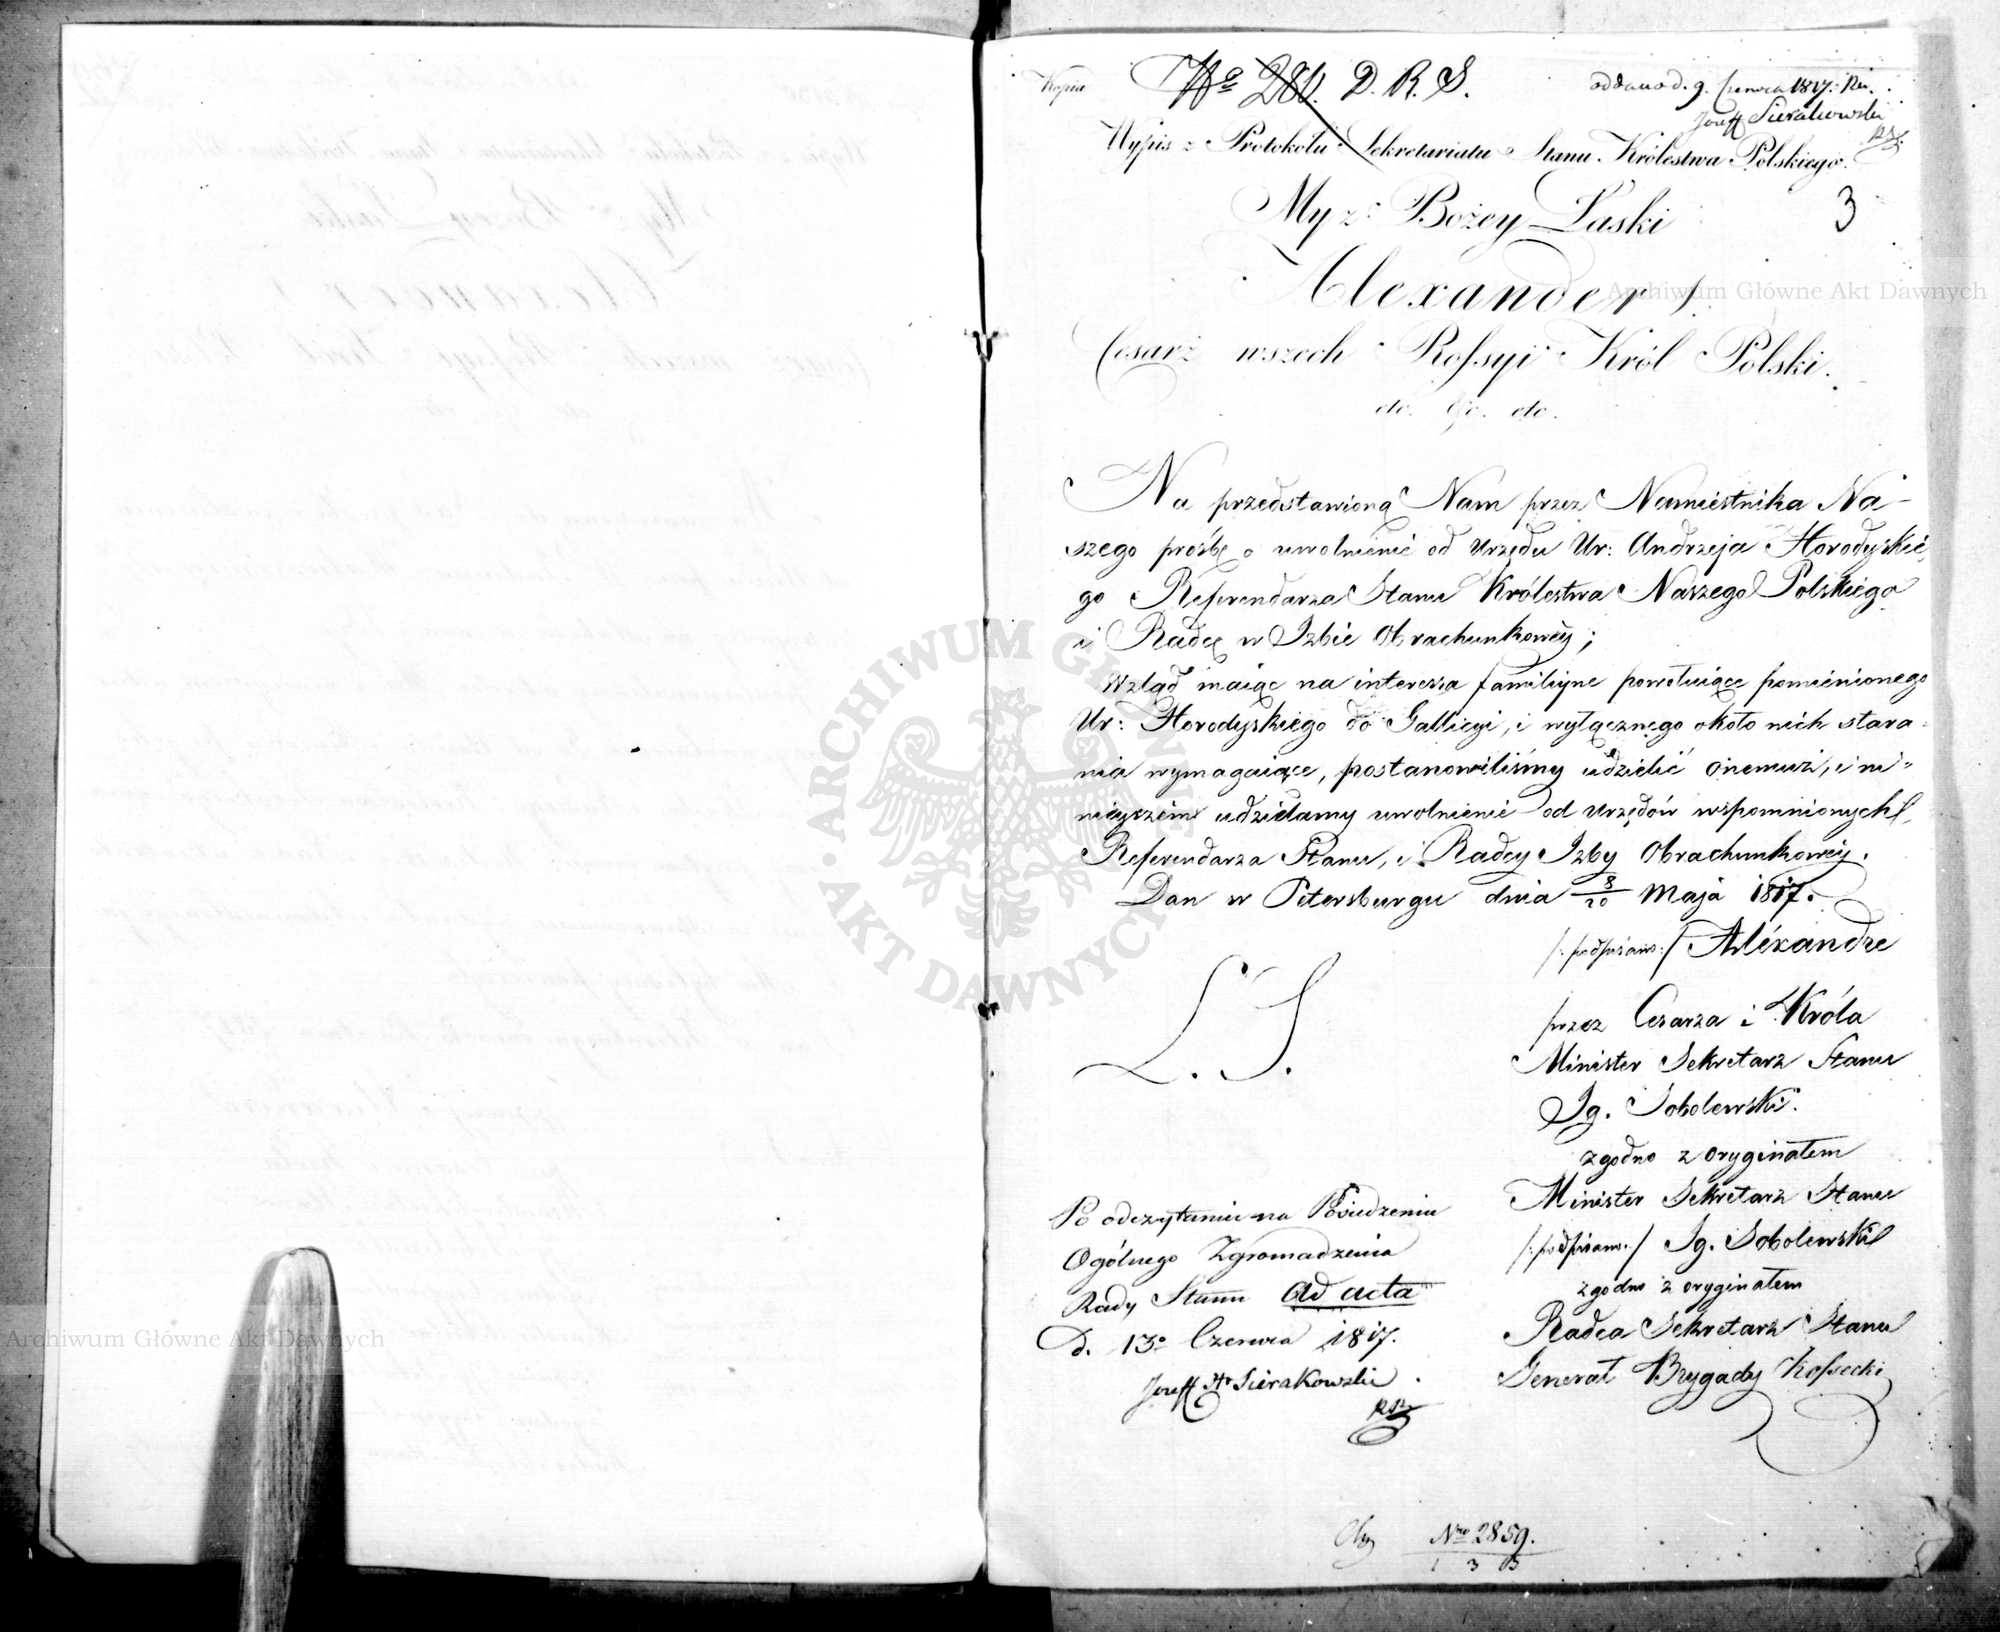 Kopia
No 280. D. R. S.
oddano d. 9. Czerwca 1817. Ru.
Józeff Sierakowski
RSt
Wypis z Protokołu Sekretariatu Stanu Królestwa Polskiego.
3
My z Bożey Łaski
Alexander I.
Cesarz wszech Rossyi Król Polski.
etc. etc. etc.
Na przedstawioną Nam przez Namiestnika Na-
szego prośbę o uwolnienie od Urzędu Ur: Andrzeja Horodyskie
go Referendarza Stanu Królestwa Naszego Polskiego
i Radcę w Izbie Obrachunkowéy;
Wzląd maiąc na interessa familiyne powołuiące pomienionego
Ur: Horodyskiego do Gallicyi, i wyłącznego około nich stara-
nia wymagaiące, postanowiliśmy udzielić onemuż, i ni-
nieyszém udzielamy uwolnienie od Urzędów wspomnionych,
Referendarza Stanu, i Radcy Izby Obrachunkowéy.
Dan w Petersburgu dnia 8/20 Maja 1817.
/:podpisano:/ Aléxandre
L. S.
przez Cesarza i Króla
Minister Sekretarz Stanu
Ig. Sobolewski.
zgodno z oryginałem
Minister Sekretarz Stanu
/:podpisano:/ Ig. Sobolewski
zgodno z oryginałem
Radca Sekretarz Stanu
Generał Brygady Kossecki
Po odczytaniu na Posiedzeniu
Ogólnego Zgromadzenia
Rady Stanu ad acta
D. 13o Czerwca 1817.
Józeff Hr Sierakowski
RSt
Nro 2859.
1 3 3
Archiwum Główne Akt Dawnych
Archiwum Główne Akt Dawnych
ARCHIWUM GŁÓWNE
AKT DAWNYCH